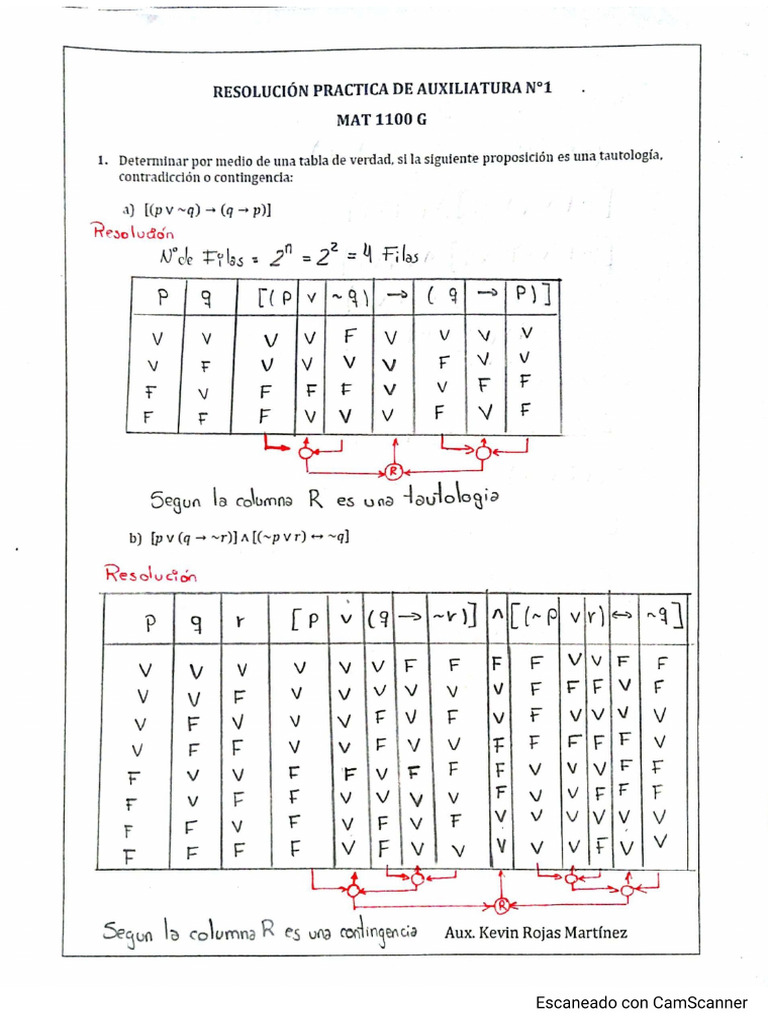 RESOLUCIÓN PRACTICA DE AUXILIATURA N°1
MAT 1100 G
1. Determinar por medio de una tabla de verdad, si la siguiente proposición es una tautología,
contradicción o contingencia:
a) [(p ∨ ~q) → (q → p)]
Resolución
N° de Filas = 2ⁿ = 2² = 4 Filas
P q [(P ∨ ~q) → (q → P)]
V V V V F V V V V
V F V V V V F V V
F V F F F V V F F
F F F V V V F V F
R
Segun la columna R es una tautologia
b) [p ∨ (q → ~r)] ∧ [(~p ∨ r) ↔ ~q]
Resolución
P q r [P ∨ (q → ~r)] ∧ [(~P ∨ r) ↔ ~q]
V V V V V V F F F F V V F F
V V F V V V V V V F F F V F
V F V V V F V F V F V V V V
V F F V V F V V F F F F F V
F V V F F V F F F V V V F F
F V F F V V V V F V V F F F
F F V F V F V F V V V V V V
F F F F V F V V V V V F V V
R
Segun la columna R es una contingencia
Aux. Kevin Rojas Martínez
Escaneado con CamScanner